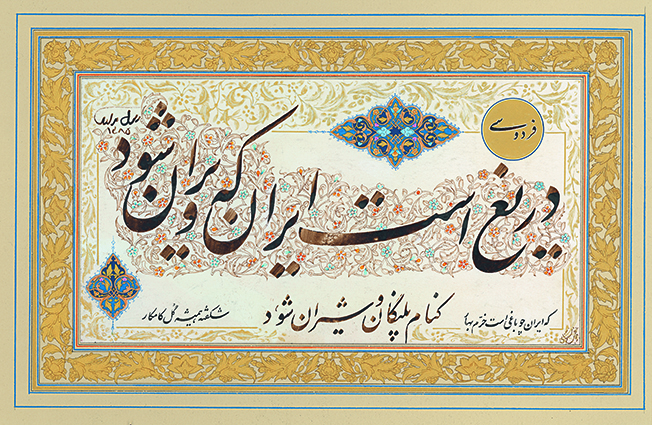 فردوسی
دریغ است ایران که ویران شود
کنام پلنگان و شیران شود
که ایران چو باغی است خرم بهار
شکفته همیشه گل کامکار
۱۳۸۵